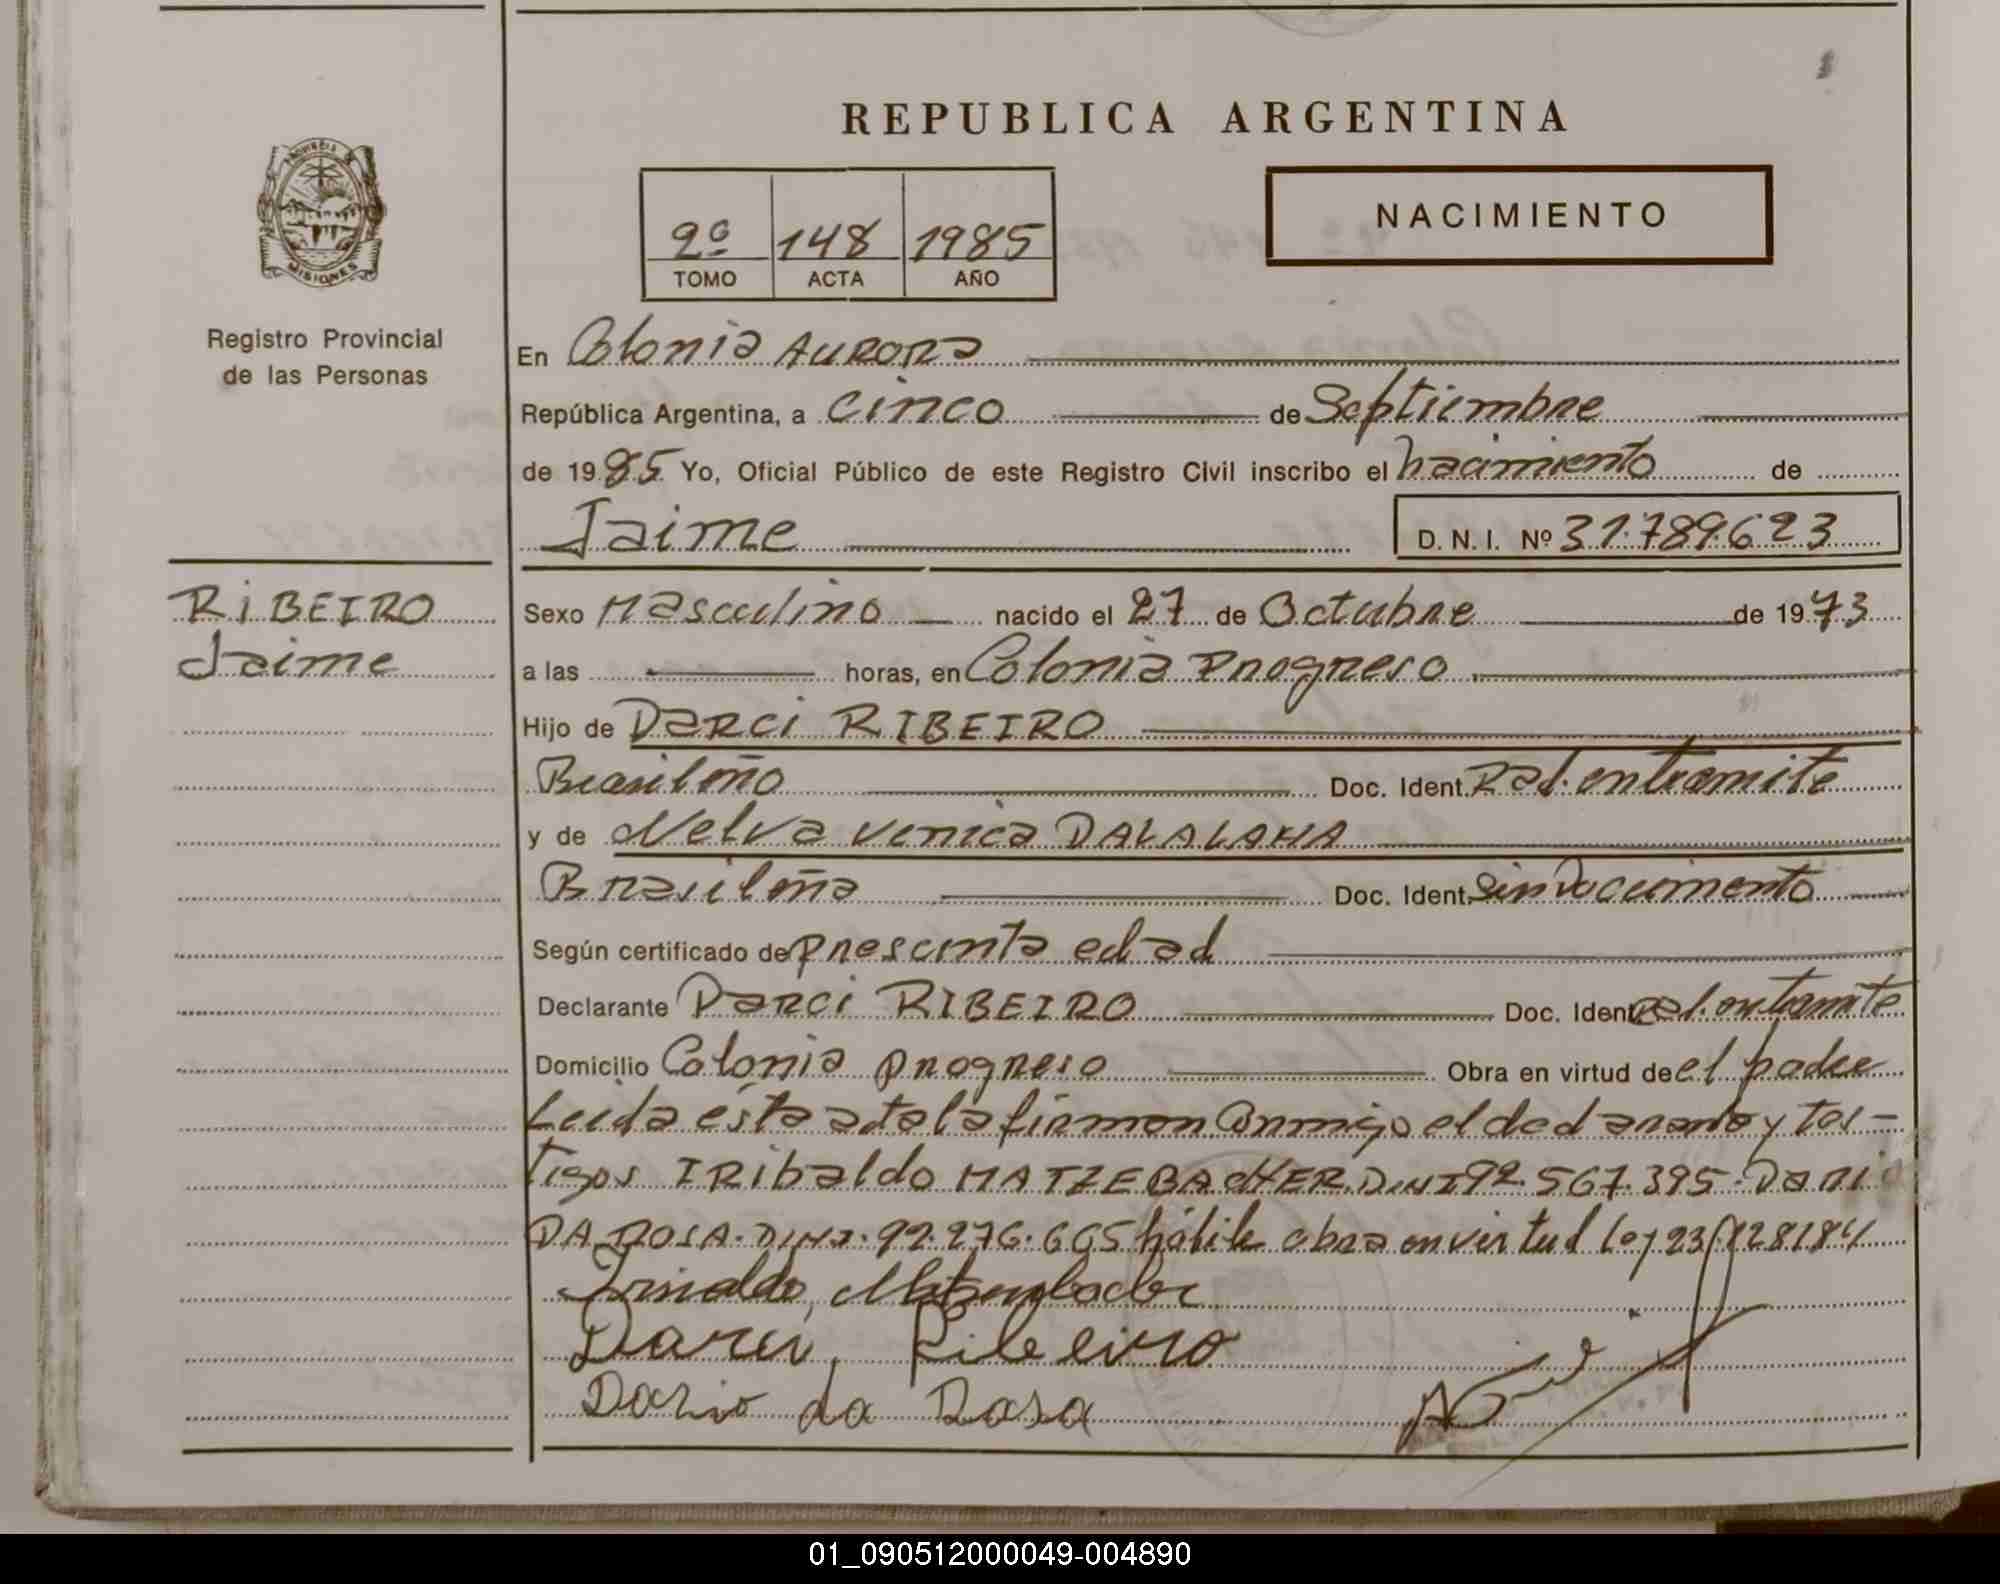 REPUBLICA ARGENTINA
PROVINCIA DE
MISIONES
Registro Provincial
de las Personas
2º 148 1985
TOMO ACTA AÑO
NACIMIENTO
En Colonia Aurora
República Argentina, a cinco de Septiembre
de 1985 Yo, Oficial Público de este Registro Civil inscribo el nacimiento de
Jaime D. N. I. Nº 31.789.623
RIBEIRO
Jaime
Sexo Masculino nacido el 27 de Octubre de 1973
a las horas, en Colonia Progreso
Hijo de Darci RIBEIRO
Brasileño Doc. Ident. Rad. en tramite
y de Nelva Venica DALALANA
Brasileña Doc. Ident. Sin Documento
Según certificado de presunta edad
Declarante Darci RIBEIRO Doc. Ident. Rad. en tramite
Domicilio Colonia Progreso Obra en virtud de el padre
Leida ésta acta la firman Conmigo el declarante y tes-
tigos IRibaldo MATZEBACHER. D.N.I 92.567.395. Dari
DA ROSA. D.N.I. 92.276.665 hábile obra en virtud Ley 23.128/84
Darci Ribeiro
Dario da Rosa
01_090512000049-004890